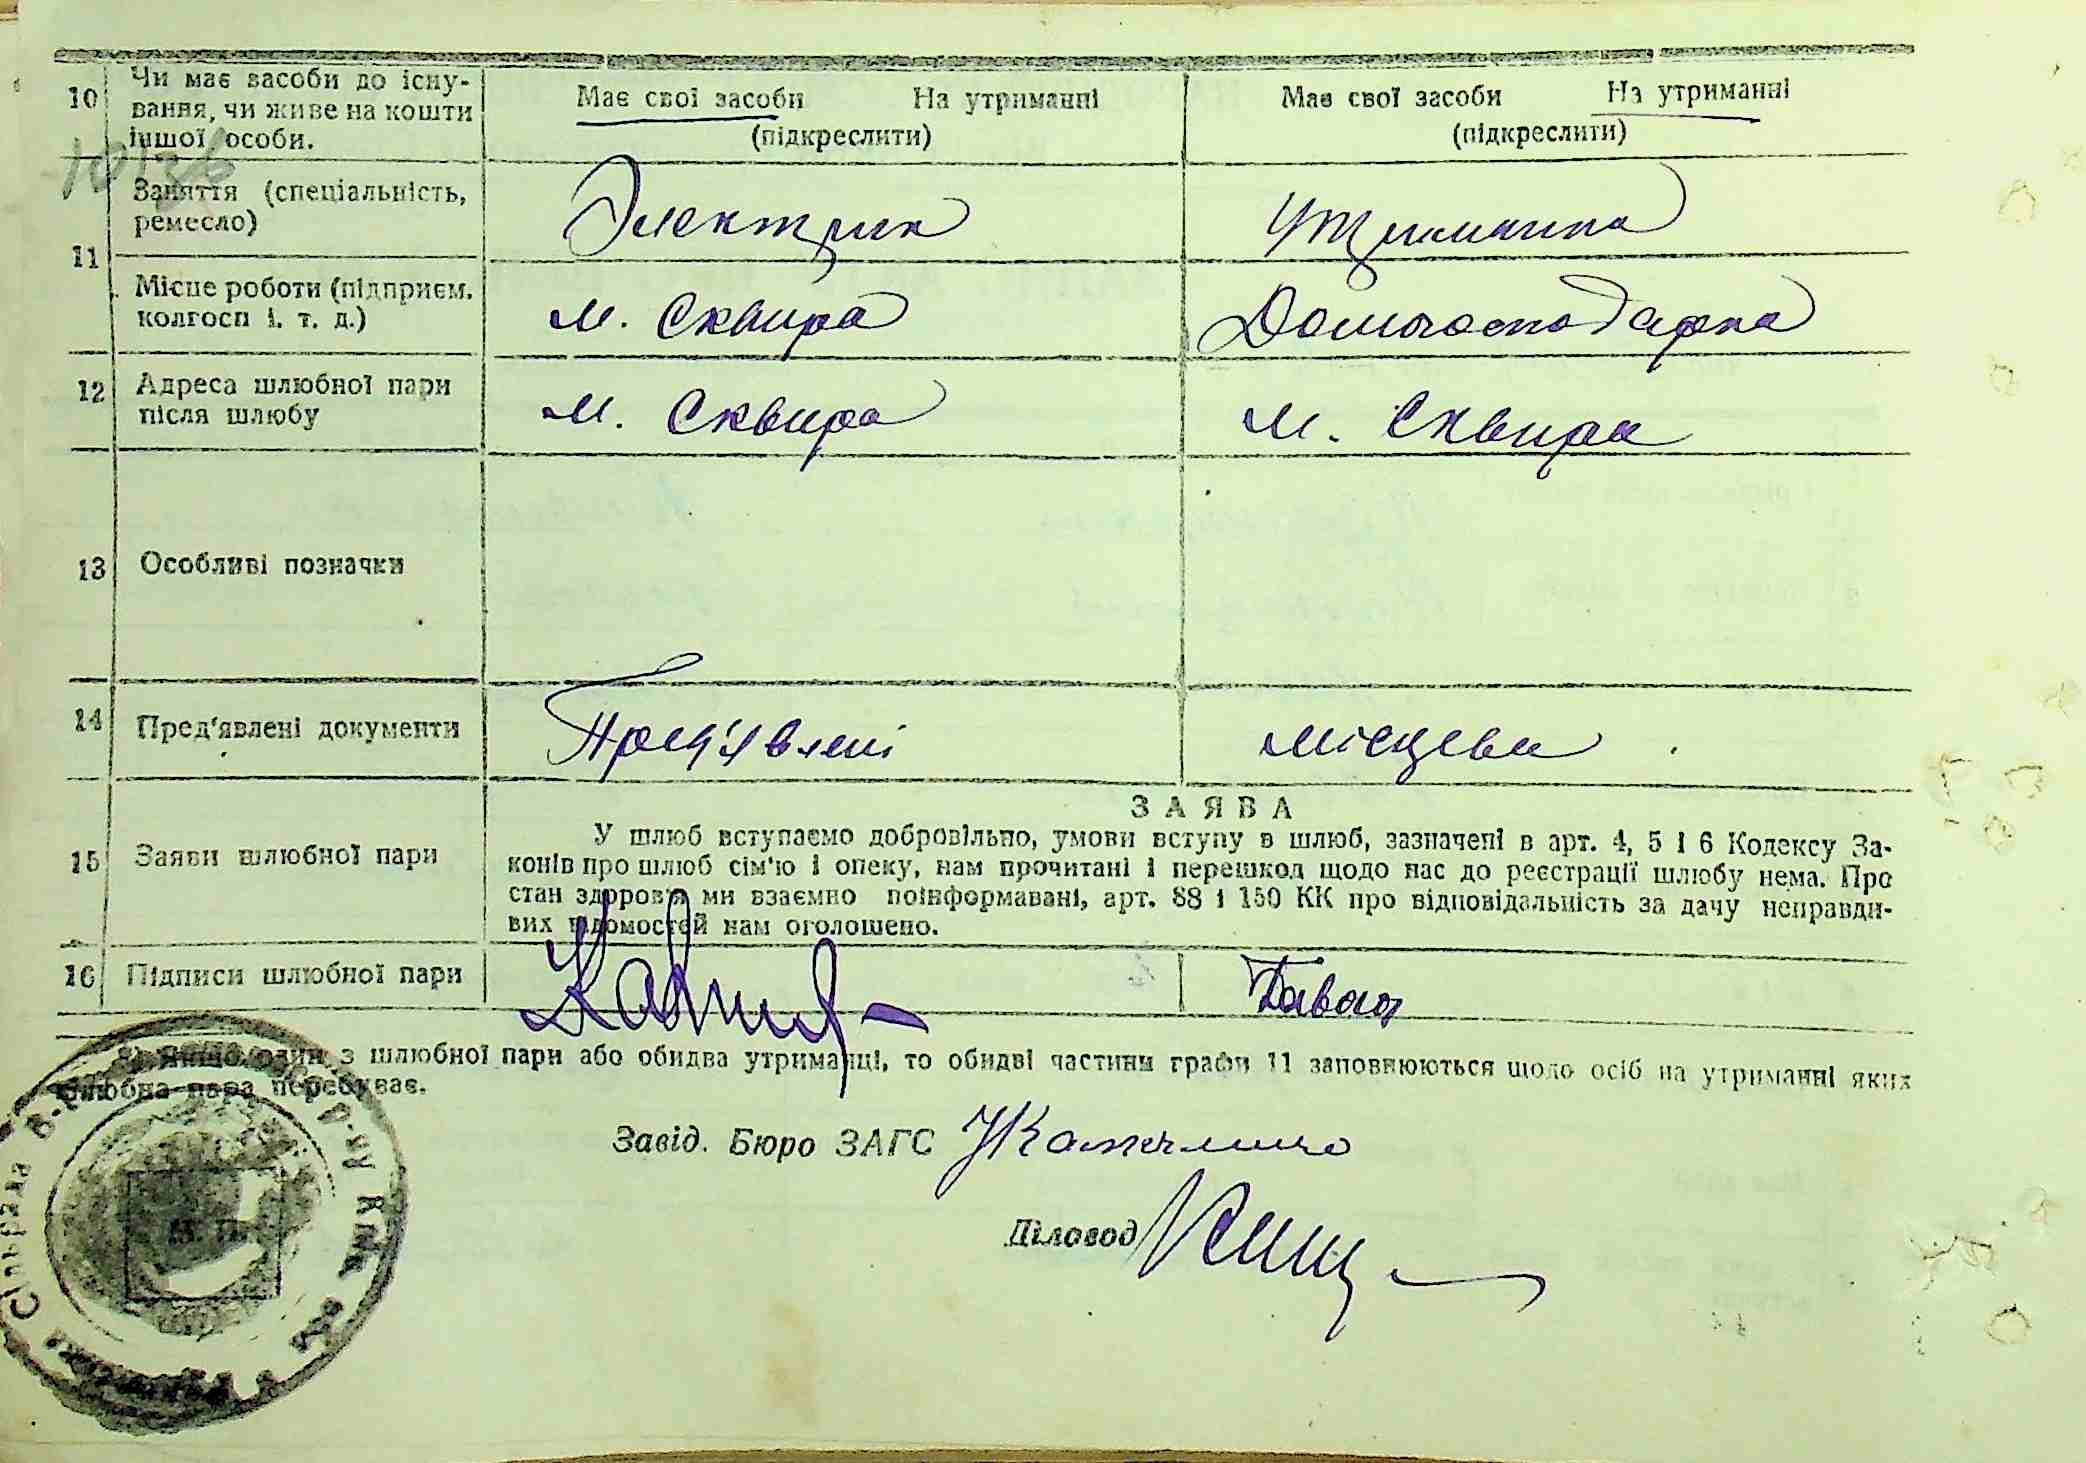 10 Чи має засоби до існу- Має свої засоби На утриманні Має свої засоби На утриманні
вання, чи живе на кошти (підкреслити) (підкреслити)
іншої особи.
Заняття (спеціальність, Электрик Утриманка
ремесло)
11
Місце роботи (підприєм. м. Сквира Домогосподарка
колгосп і. т. д.)
12 Адреса шлюбної пари м. Сквира м. Сквира
після шлюбу
13 Особливі позначки
14 Пред'явлені документи Пред'явлені місцеви
ЗАЯВА
15 Заяви шлюбної пари У шлюб вступаємо добровільно, умови вступу в шлюб, зазначені в арт. 4, 5 і 6 Кодексу За-
конів про шлюб сім'ю і опеку, нам прочитані і перешкод щодо нас до реєстрації шлюбу нема. Про
стан здоров'я ми взаємно поінформавані, арт. 88 і 150 КК про відповідальність за дачу неправди-
вих відомостей нам оголошено.
16 Підписи шлюбної пари
Якщо один з шлюбної пари або обидва утриманці, то обидві частини графи 11 заповнюються щодо осіб на утриманні яких
шлюбна пара перебуває.
Завід. Бюро ЗАГС
Діловод
М. П.